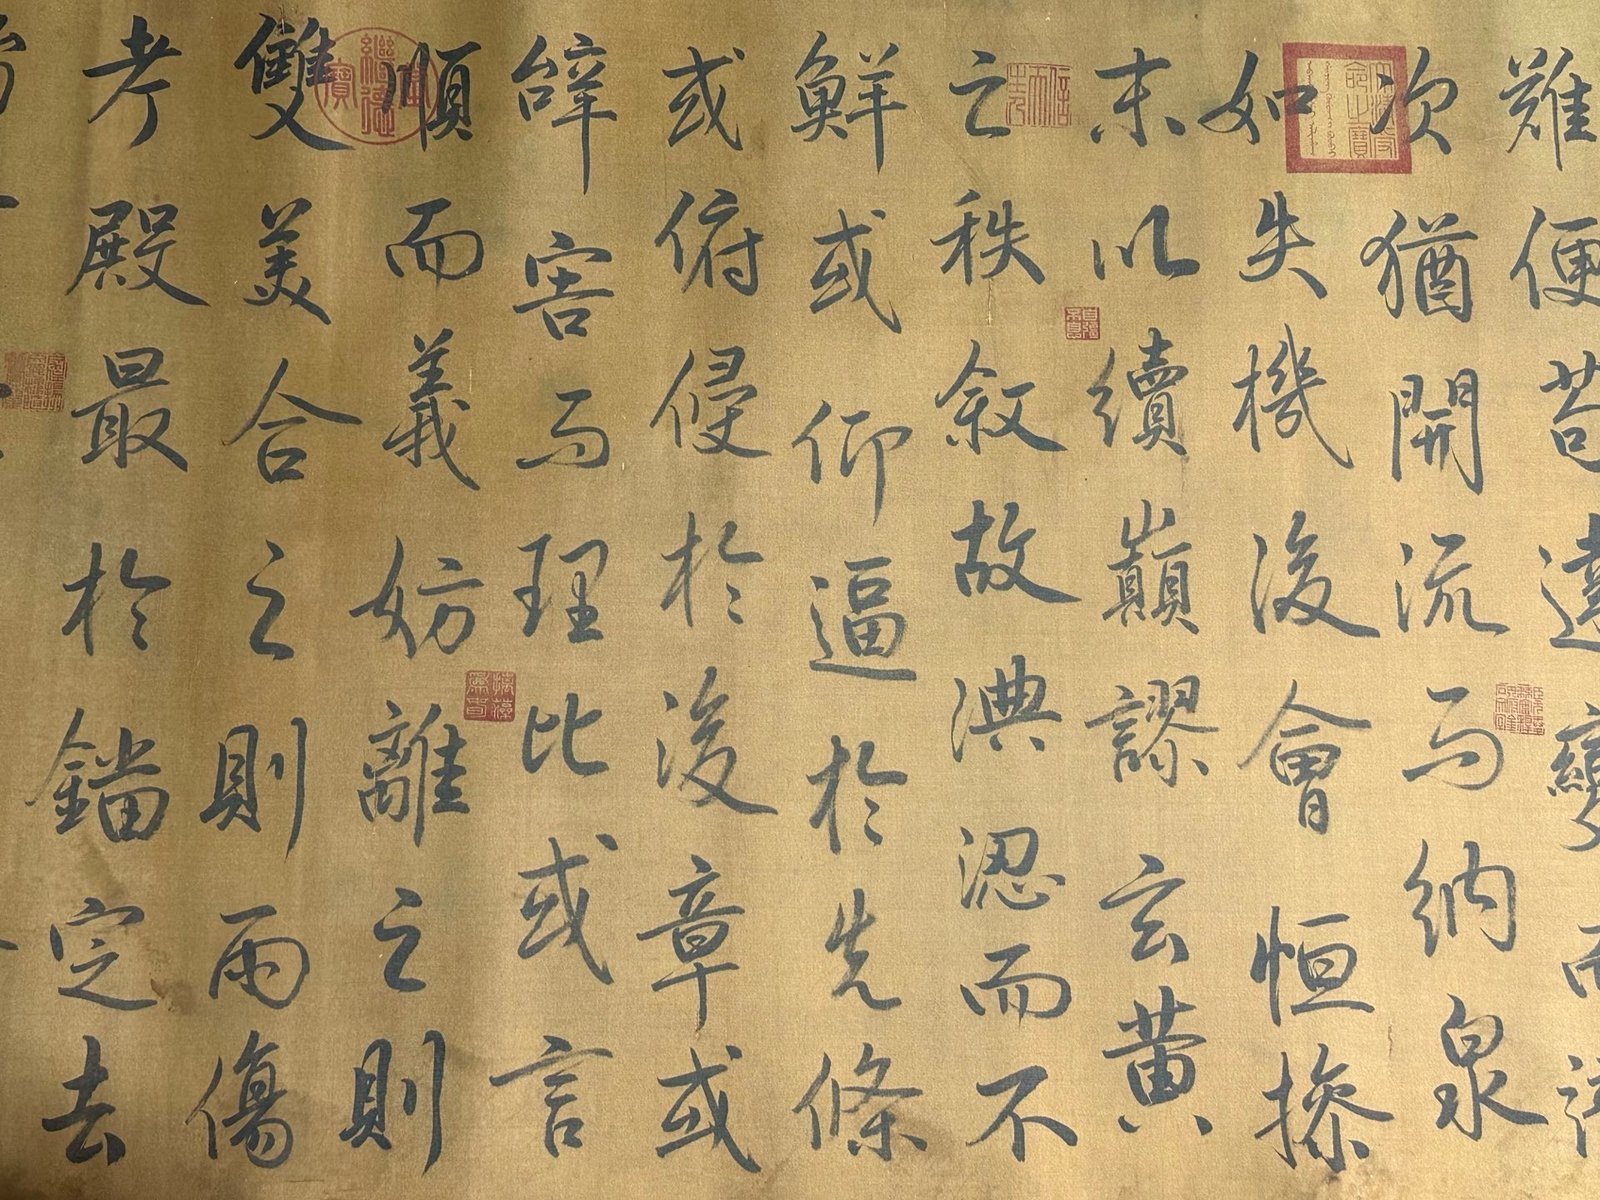 難便苟達變而識
次猶開流而納泉
如失機後會恒操
末以續巔謬玄黃
之秩敘故淟涊而不
鮮或仰逼於先條
或俯侵於後章或
辭害而理比或言
順而義妨離之則
雙美合之則兩傷
考殿最於錙定去